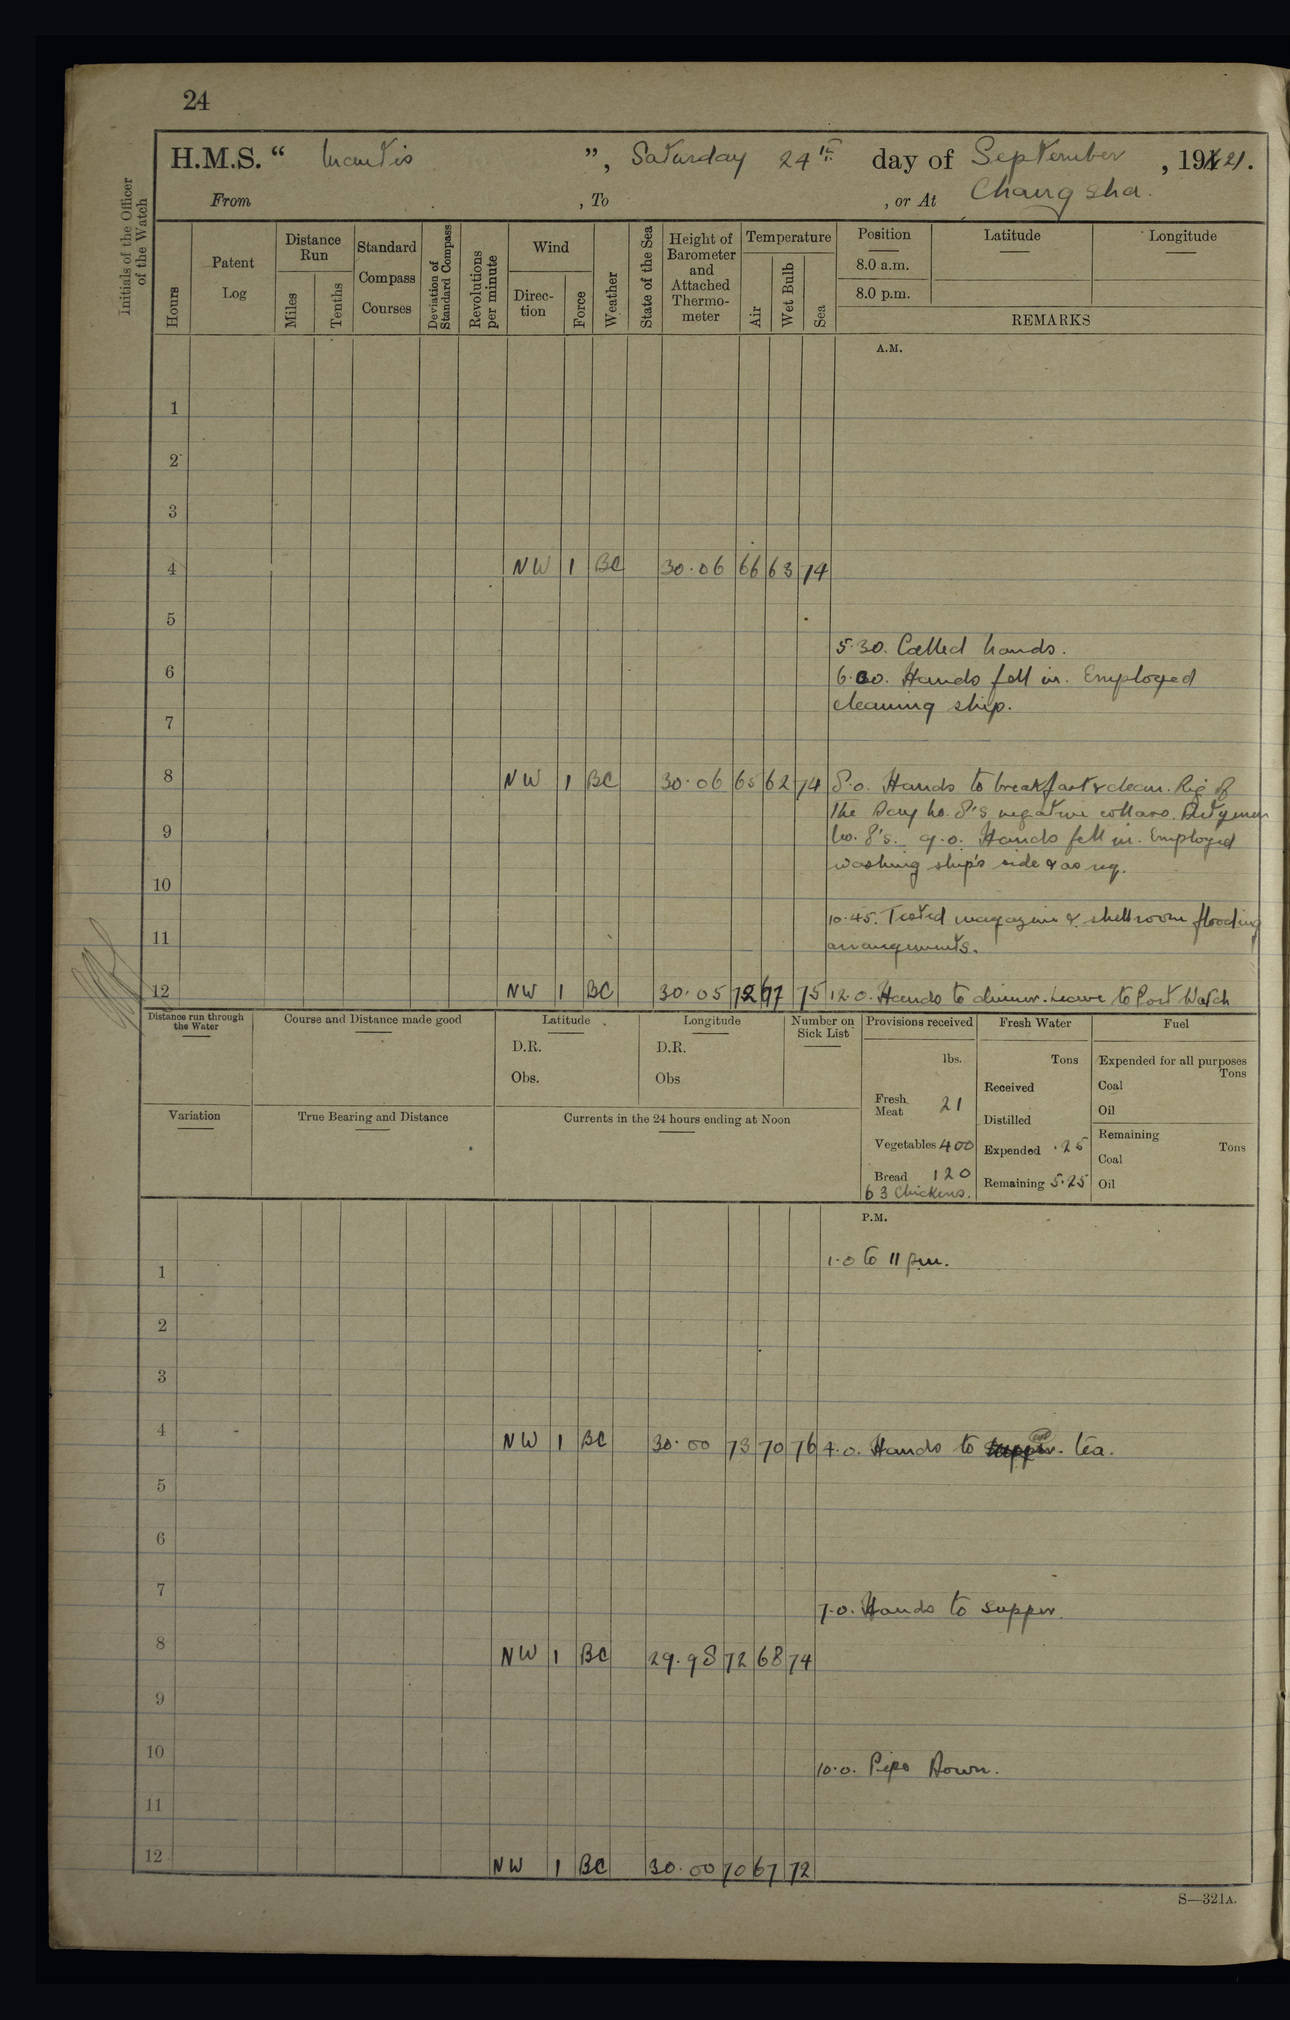 24
H.M.S. “ Mantis ”, Saturday 24th day of September , 1921.
From , To , or At Changsha.
Initials of the Officer of the Watch
Hours
Patent Log
Distance Run
Miles
Tenths
Standard Compass Courses
Deviation of Standard Compass
Revolutions per minute
Wind
Direction
Force
Weather
State of the Sea
Height of Barometer and Attached Thermometer
Temperature
Air
Wet Bulb
Sea
Position
8.0 a.m.
8.0 p.m.
Latitude
Longitude
REMARKS
A.M.
1
2
3
4 NW 1 BC 30.06 66 63 74
5
5.30. Called hands.
6 6.00. Hands fell in. Employed
cleaning ship.
7
8 NW 1 BC 30.06 65 62 74 8.0. Hands to breakfast & clean. Rig of
the Day No. 8's negative collars. Dutymen
9 No. 8's. 9.0. Hands fell in. Employed
washing ship's side & as req.
10
10.45. Tested magazine & shellroom flooding
11 arrangements.
12 NW 1 BC 30.05 72 67 75 12.0. Hands to dinner. Leave to Port Watch
Distance run through the Water
Course and Distance made good
Latitude
D.R.
Obs.
Longitude
D.R.
Obs
Number on Sick List
Provisions received
lbs.
Fresh Meat 21
Vegetables 400
Bread 120
63 Chickens.
Fresh Water
Tons
Received
Distilled
Expended .25
Remaining 5.25
Fuel
Expended for all purposes
Tons
Coal
Oil
Remaining
Tons
Coal
Oil
Variation
True Bearing and Distance
Currents in the 24 hours ending at Noon
P.M.
1 1.0 to 11 pm.
2
3
4 NW 1 BC 30.00 73 70 76 4.0. Hands to supper. tea.
5
6
7 7.0. Hands to supper.
8 NW 1 BC 29.98 72 68 74
9
10 10.0. Pipe Down.
11
12 NW 1 BC 30.00 70 67 72
S—321A.